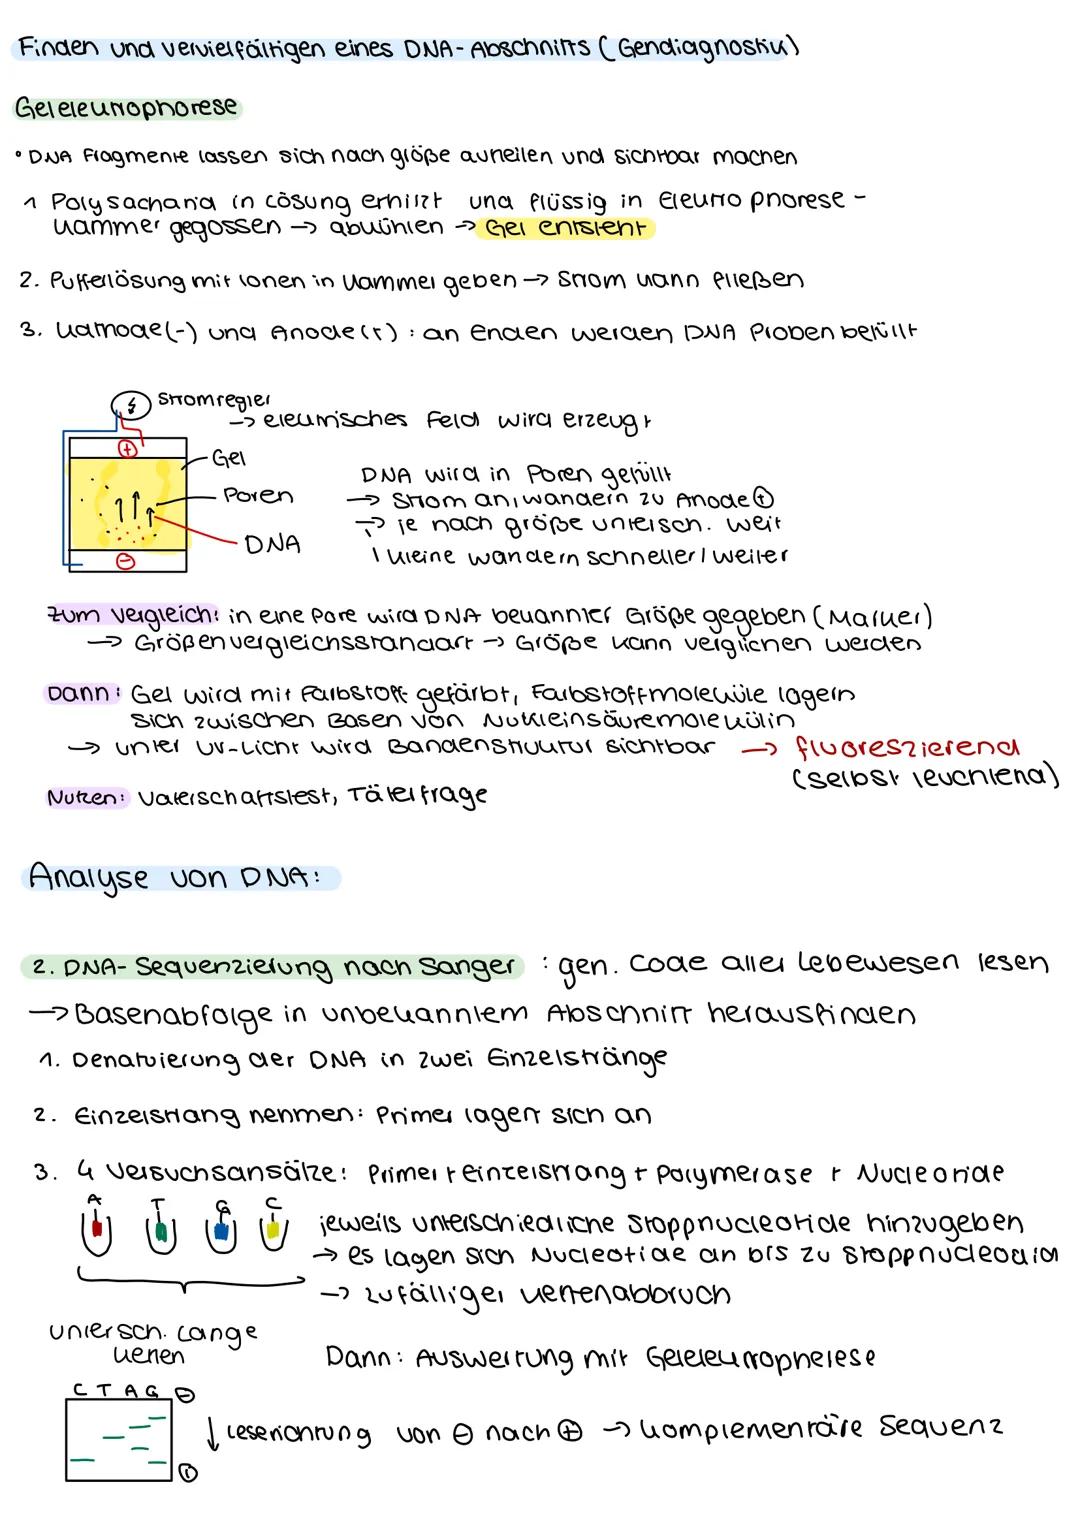 Finden und vervielfältigen eines DNA-Abschnitts (Gendiagnostik)
Gelelektrophorese
• DNA Fragmente lassen sich nach größe aufteilen und sichtbar machen
1 Polysacharid in Lösung erhitzt und flüssig in Elektrophorese-
kammer gegossen → abkühlen → Gel entsteht
2. Pufferlösung mit Ionen in Kammer geben → Strom kann fließen
3. Kathode(-) und Anode(+) : an Enden werden DNA Proben befüllt
Stromregler
→ elektrisches Feld wird erzeugt
+
Gel
Poren
DNA
-
DNA wird in Poren gefüllt
→ Strom an, wandern zu Anode +
→ je nach größe untersch. weit
! kleine wandern schneller / weiter
Zum Vergleich: in eine Pore wird DNA bekannter Größe gegeben (Marker)
→ Größenvergleichsstandart → Größe kann verglichen werden
Dann: Gel wird mit Farbstoff gefärbt, Farbstoffmoleküle lagern
sich zwischen Basen von Nukleinsäuremolekülin
→ unter UV-Licht wird Bandenstruktur sichtbar → fluoreszierend
(selbst leuchtend)
Nutzen: Vaterschaftstest, Täterfrage
Analyse von DNA:
2. DNA-Sequenzierung nach Sanger : gen. Code aller Lebewesen lesen
→ Basenabfolge in unbekanntem Abschnitt herausfinden
1. Denaturierung der DNA in zwei Einzelstränge
2. Einzelstrang nehmen: Primer lagert sich an
3. 4 Versuchsansätze: Primer + einzelstrang + Polymerase + Nucleotide
A T G C
jeweils unterschiedliche Stoppnucleotide hinzugeben
→ es lagen sich Nucleotide an bis zu Stoppnucleodid
→ zufälliger Kettenabbruch
untersch. Lange
Ketten
Dann: Auswertung mit Gelelektrophelese
C T A G -
↓ Leserichtung von - nach + → komplementräre Sequenz
+